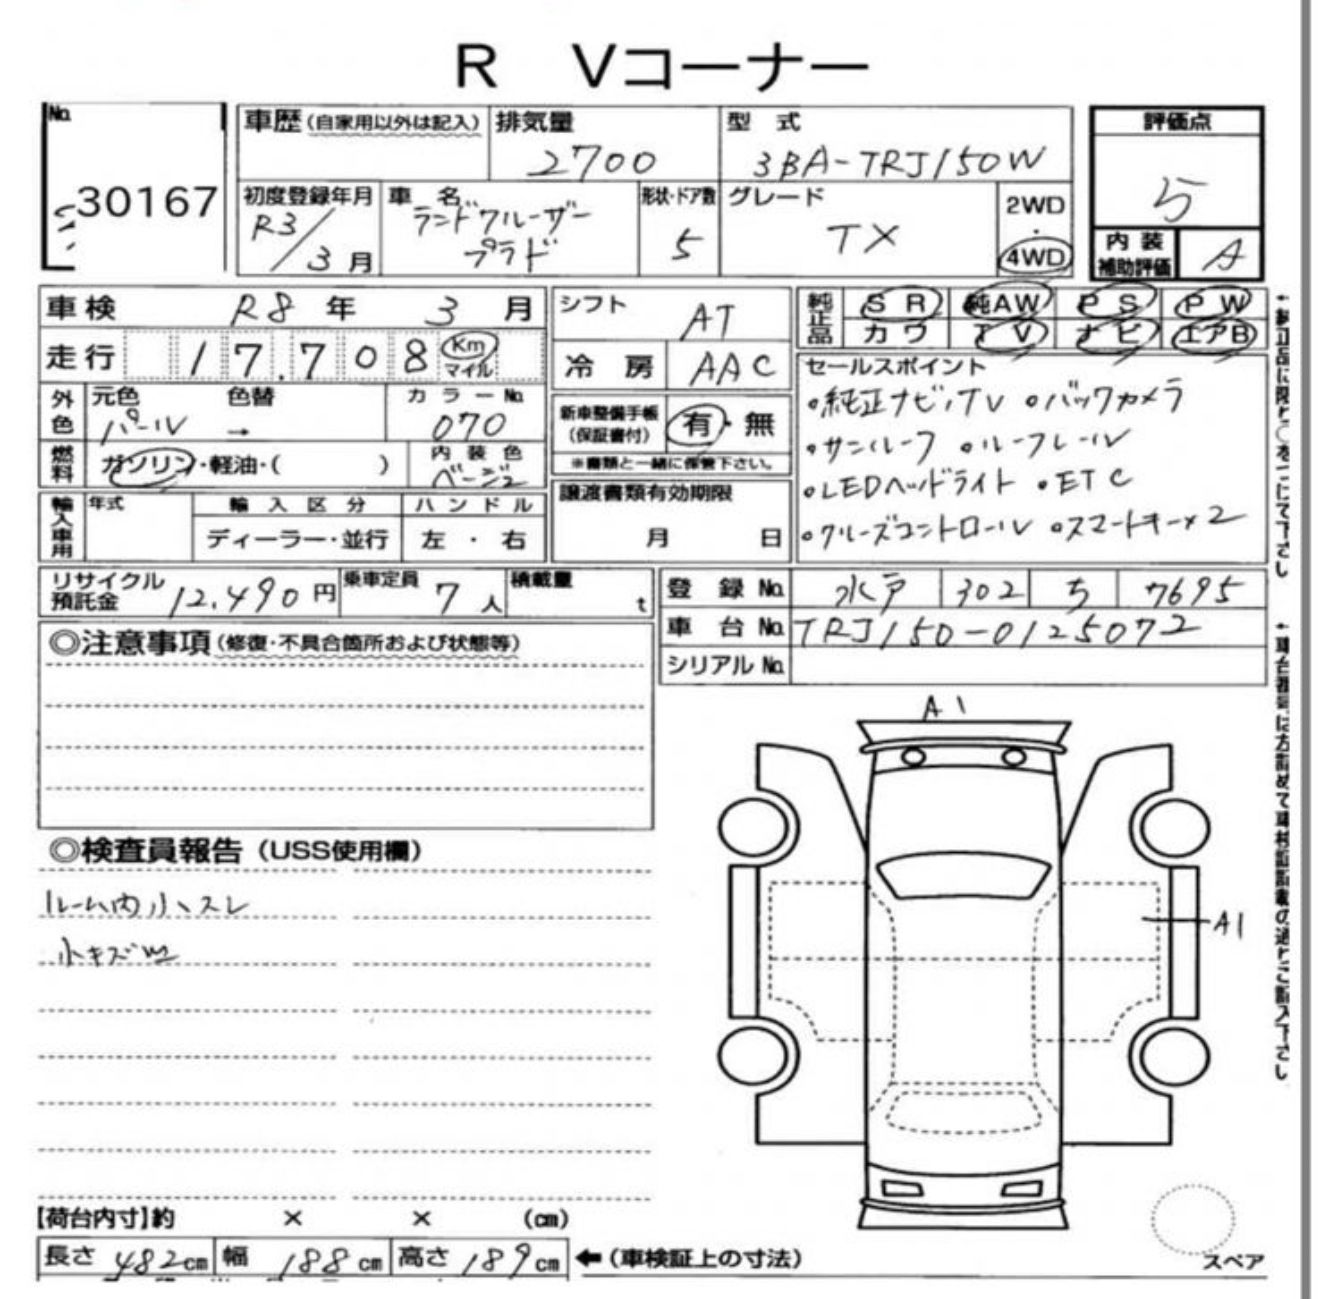 R Vコーナー
No.
30167
車歴(自家用以外は記入) 排気量 型 式
2700 3BA-TRJ150W
初度登録年月 車 名 形状・ドア数 グレード
R3/3月 ランドクルーザー プラド 5 TX
2WD
・
4WD
評価点
5
内装
補助評価 A
車検 R8年 3月
走行 17,708 Km
マイル
外色 元色 色替 カラーNo.
パール → 070
燃料 ガソリン・軽油・( ) 内装色
ベージュ
輸入車用 年式 輸入区分 ハンドル
ディーラー・並行 左・右
シフト AT
冷房 AAC
新車整備手帳
(保証書付) 有・無
※書類と一緒に保管下さい。
譲渡書類有効期限
月 日
純正品 SR 純AW PS PW
カワ TV ナビ エアB
セールスポイント
•純正ナビ,TV •バックカメラ
•サンルーフ •ルーフレール
•LEDヘッドライト •ETC
•クルーズコントロール •スマートキー×2
リサイクル
預託金 12,490円 乗車定員 7人 積載量 t
登録No. 水戸 302 ち 7695
車台No. TRJ150-0125072
シリアルNo.
◎注意事項(修復・不具合箇所および状態等)
◎検査員報告(USS使用欄)
ルーム内小スレ
小キズ
A1
A1
【荷台内寸】約 × × (cm)
長さ 482cm 幅 188cm 高さ 189cm ←(車検証上の寸法)
スペア